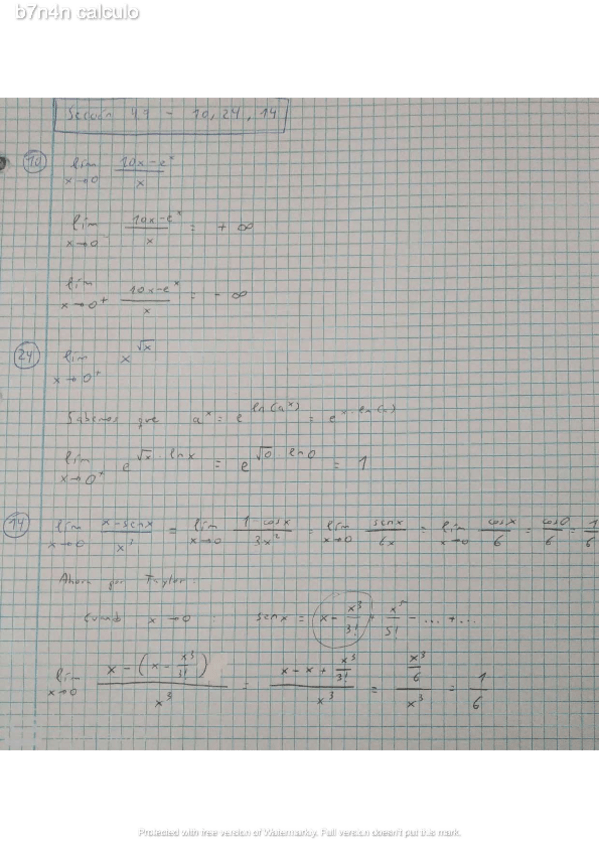 b7n4n calculo
Sección 4.7 - 10, 24, 14
10 lim x→0 (10x-e^x)/x
lim x→0⁻ (10x-e^x)/x = +∞
lim x→0⁺ (10x-e^x)/x = -∞
24 lim x→0⁺ x^√x
Sabemos que a^x = e^ln(a^x) = e^x·ln(x)
lim x→0⁺ e^√x·lnx = e^√0·ln0 = 1
14 lim x→0 (x-senx)/x³ = lim x→0 (1-cosx)/3x² = lim x→0 senx/6x = lim x→0 cosx/6 = cos0/6 = 1/6
Ahora por Taylor:
Cuando x→0 : senx = x - x³/3! + x⁵/5! - ... + ...
lim x→0 (x-(x-x³/3!))/x³ = (x-x+x³/3!)/x³ = (x³/6)/x³ = 1/6
Protected with free version of Watermarkly. Full version doesn't put this mark.